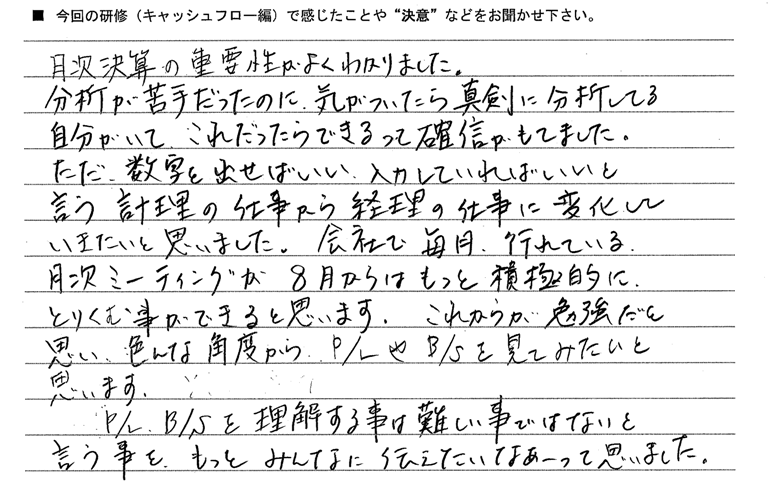 ■ 今回の研修（キャッシュフロー編）で感じたことや“決意”などをお聞かせ下さい。
月次決算の重要性がよくわかりました。
分析が苦手だったのに、気がついたら真剣に分析してる
自分がいて、これだったらできるって確信がもてました。
ただ、数字を出せばいい、入力していればいいと
言う計理の仕事から経理の仕事に変化して
いきたいと思いました。会社で毎月、行れている、
月次ミーティングが8月からはもっと積極的に、
とりくむ事ができると思います。これからが勉強だと
思い、色んな角度から、P/LやB/Sを見てみたいと
思います。
P/L、B/Sを理解する事は難しい事ではないと
言う事を、もっとみんなに伝えたいなあーって思いました。